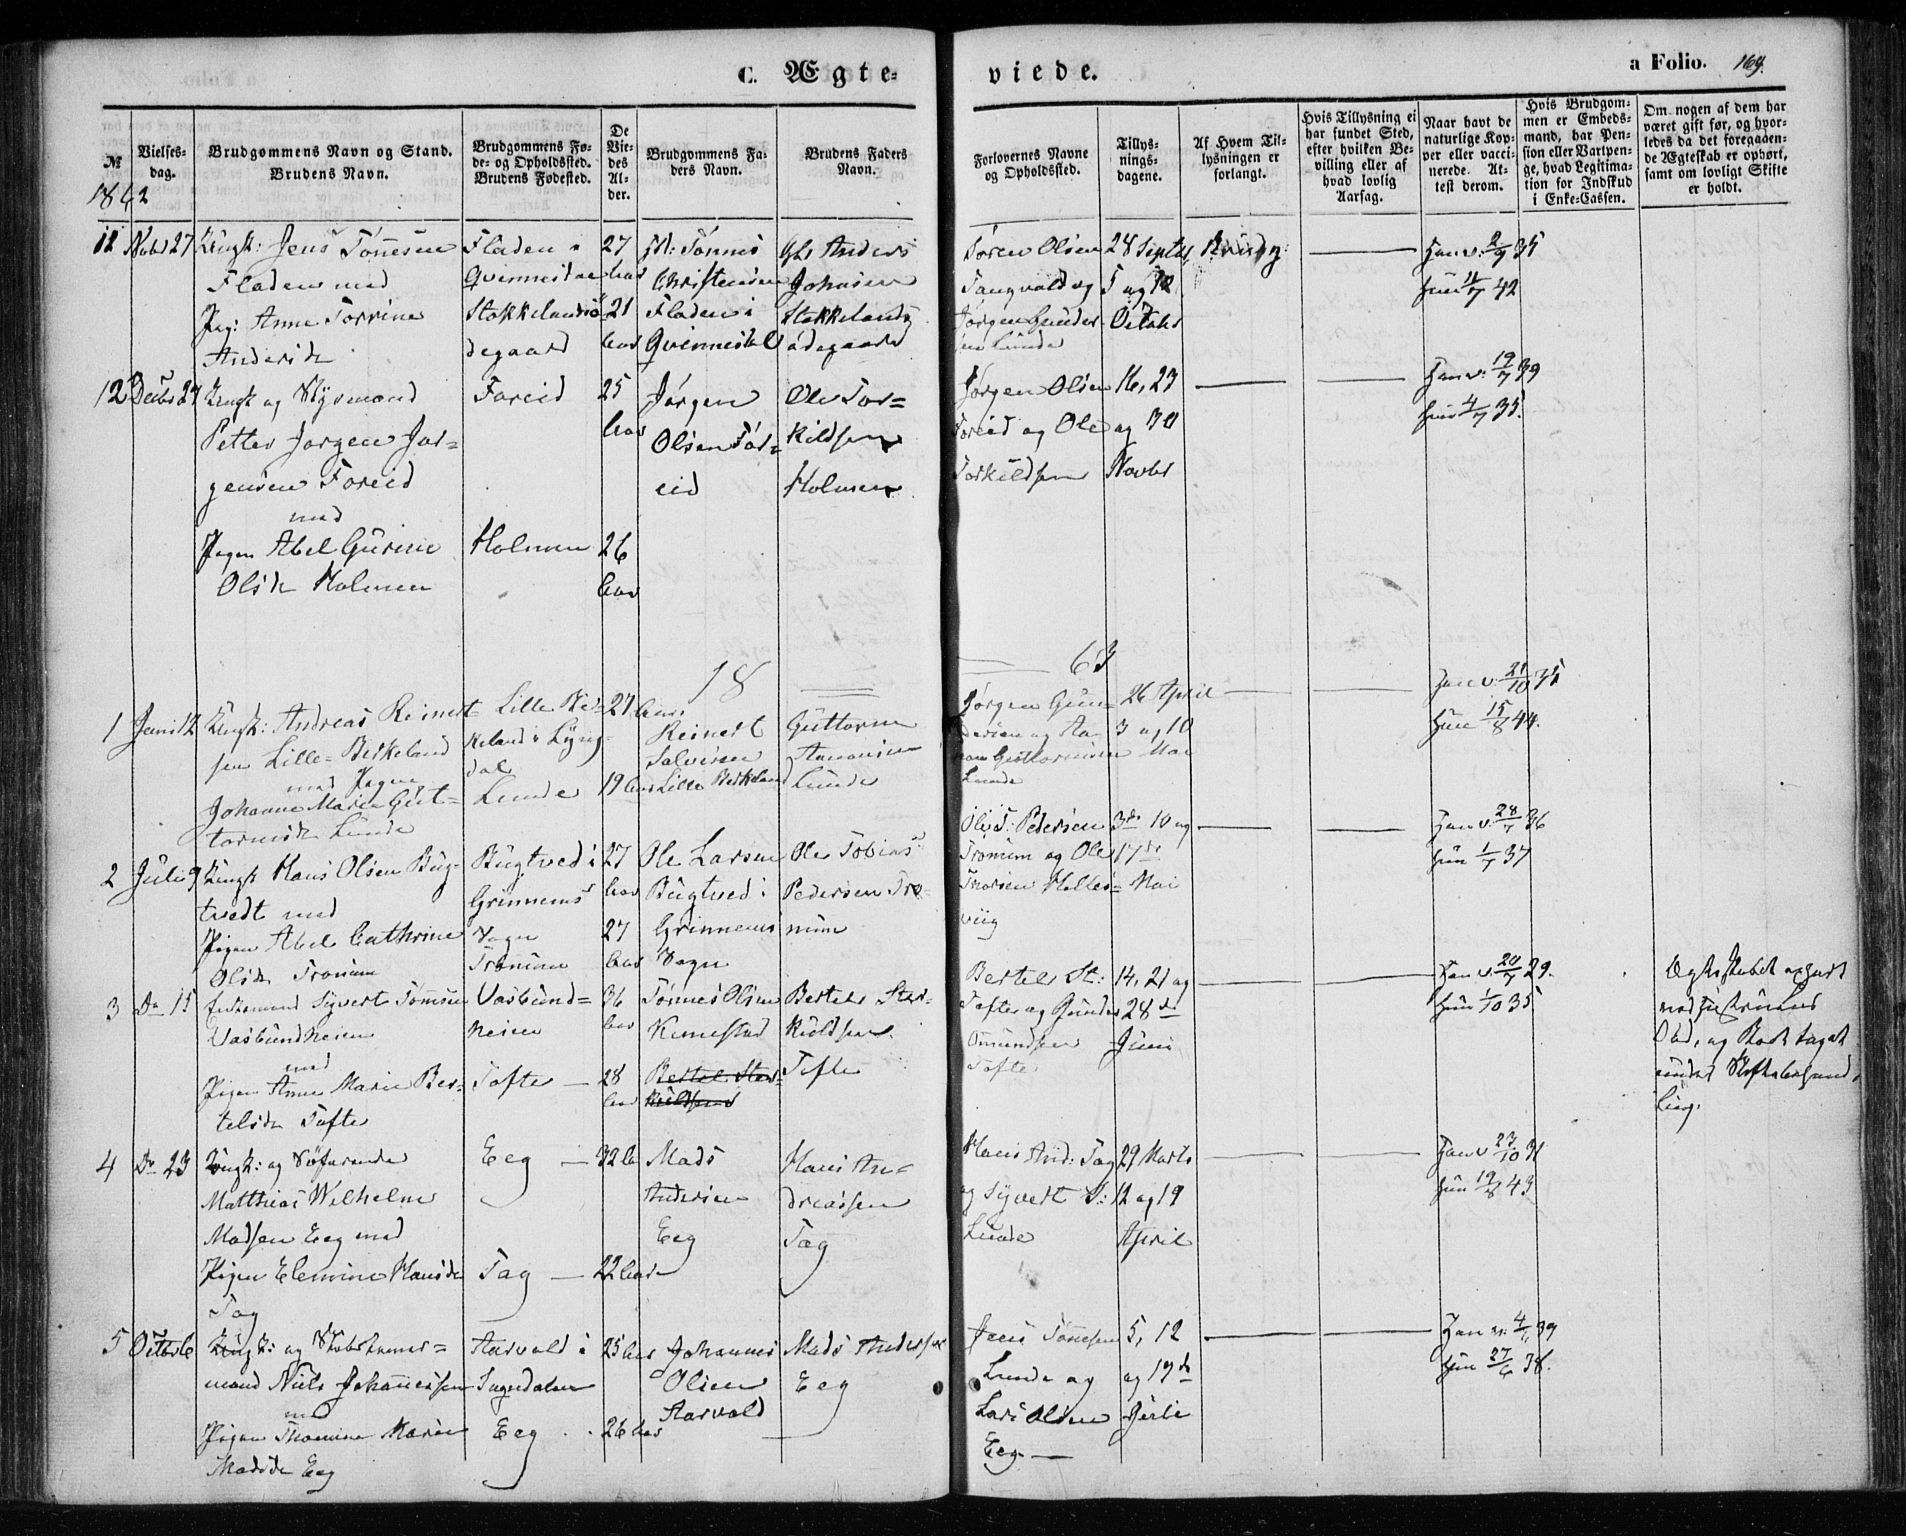 C. Ægte-
viede.
a Folio. 169.
№
Vielses-
dag.
Brudgommens Navn og Stand.
Brudens Navn.
Brudgommens Fø-
de- og Opholdssted.
Brudens Fødested.
De
Vie-
des
Al-
der.
Brudgommens Fa-
ders Navn.
Brudens Faders
Navn.
Forlovernes Navne
og Opholdssted.
Tillys-
nings-
dagene.
Af Hvem Til-
lysningen er
forlangt.
Hvis Tillysning ei
har fundet Sted,
efter hvilken Be-
villing eller af
hvad lovlig
Aarsag.
Naar havt de
naturlige Kop-
per eller vacci-
nerede. At-
test derom.
Hvis Brudgom-
men er Embeds-
mand, har Pen-
sion eller Vartpen-
ge, hvad Legitima-
tion for Indskud
i Enke-Cassen.
Om nogen af dem har
været gift før, og hvor-
ledes da det foregaaen-
de Ægteskab er ophørt,
samt om lovligt Skifte
er holdt.
1862
11 Novbr 27
Ungk: Jens Tønnesen
Fladen med
Pig: Anne Torrine
Andersdr
Fladen i
Qvinnesdal
Stokkelandsø-
degaard
27
aar
21
aar
Tønnes
Christensen
Fladen i
Qvinnesdal
Anders
Johnsen
Stokkelands
ødegaard
Søren Olsen
Tangvald og
Jørgen Gunder-
sen Lunde
28 Septbr
5 og 12
Octobr
Han v: 2/9 35
Hun 11/7 42
12 Decbr 27
Ungk og Styrmand
Petter Jørgen Jør-
gensen Foreid
med
Pigen Abel Gurine
Olsdr Holmen
Foreid
Holmen
25
aar
26
aar
Jørgen
Olsen For-
eid
Ole Tor-
kildsen
Holmen
Jørgen Olsen
Foreid og Ole
Torkildsen
16, 23
og 30
Novbr
Han v: 19/7 39
Hun 4/7 35.
18
63
1 Juni 12
Ungk: Andreas Reinert-
sen Lille-Birkeland
med Pigen
Johanne Marie Gut-
tormsdr Lunde
Lille Bir-
keland i Lyng-
dal
Lunde
27 aar
19 aar
Reinert
Salvesen
Lille Birkeland
Guttorm
Aanonsen
Lunde
Jørgen Gun-
dersen og Aa-
non Guttormsen
Lunde
26 April
3 og 10
Mai
Han v. 21/10 35
Hun 15/8 44.
2 Juli 9
Ungk Hans Olsen Bug-
tvedt med
Pigen Abel Cathrine
Olsdr Tronum
Bugtved i
Grimnems
Sogn
Tronum
27
aar
27
aar
Ole Larsen
Bugtved i
Grimnems
Sogn
Ole Tobias
Pedersen Tro-
num
Ole T: Pedersen
Tronum og Ole
Thorsen Helles-
viig
3die 10 og
17de
Mai
Han v. 28/7 36
Hun 1/7 37
3 Do 15
Enkemand Syvert Tønnesen
Vasbundheien
med
Pigen Anne Marie Ber-
telsdr Tofte
Vasbund-
heien
Tofte
36
aar
28
aar
Tønnes Olsen
Kumestad
Bertel Stor-
kuldsen
Bertel Stor-
kuldsen
Tofte
Bertel St:
Tofte og Gunder
Omundsen
Tofte
14, 21 og
28de
Juni
Han v. 20/7 29.
Hun 1/10 35
Ægteskabet ophørt
ved Hustruens
Død, og Boet taget
under Skiftebehand-
ling.
4 Do 23
Ungk: og Søfarende
Matthias Wilhelm
Madsen Eeg med
Pigen Elenine Hansdr
Tag
Eeg
Tag
32 aar
22 aar
Mads
Andersen
Eeg
Hans An-
dreassen
Tag
Hans And: Tag
og Syvert S:
Lunde
29 Marts
12 og 19
April
Han v 23/10 31
Hun 19/8 43
5 Octbr 6
Ungk: og Skibstømmer-
mand Niels Johannessen
med
Pigen Thomine Marie
Madsdr Eeg
Aarvold i
Sogndalen
Eeg
25 aar
26 aar
Johannes
Olsen
Aarvold
Mads Andersen
Eeg
Jens Tønnesen
Lunde og
Lars Olsen
Eeg
5, 12
og 19de
Juli
Han v. 4/1 39
Hun 27/6 38.